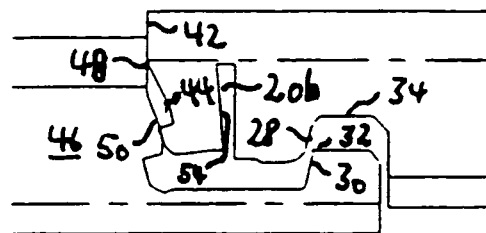 42
48
44 20b 34
46 50 28 32
54 30